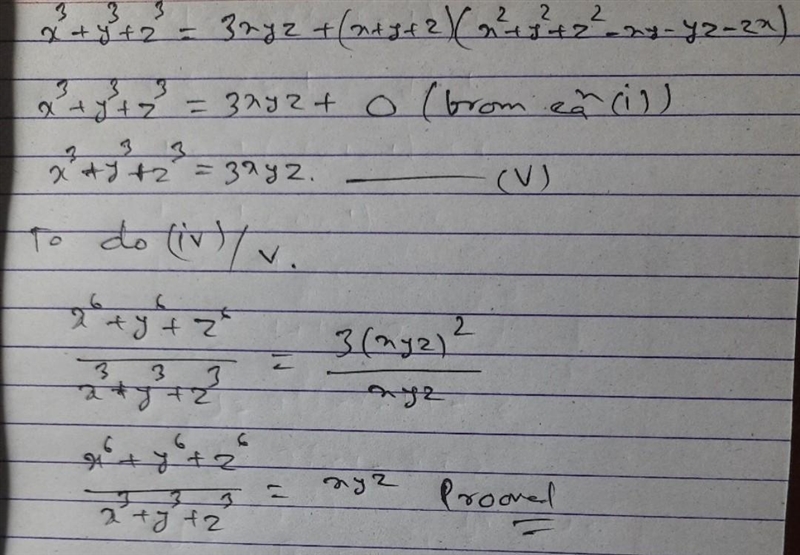 x³+y³+z³ = 3xyz+(x+y+z)(x²+y²+z²-xy-yz-zx)
x³+y³+z³ = 3xyz+ 0 (from eqⁿ(i))
x³+y³+z³ = 3xyz. ——— (V)
To do (iv)/v.
x⁶+y⁶+z⁶/x³+y³+z³ = 3(xyz)²/xyz
x⁶+y⁶+z⁶/x³+y³+z³ = xyz Prooved